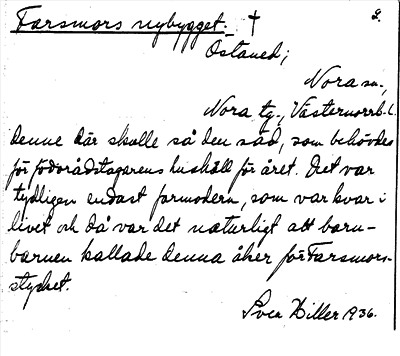 Farsmors nybygget. † 2.
Östaned;
Nora sn.,
Nora tg., Västernorrl. l.
denne där skolle så den säd, som behövdes
för födorådstagarens hushåll för året. Det var
tydligen endast farmodern, som var kvar i
livet och då var det naturligt att barn-
barnen kallade denna åker för Farsmors-
stycket.
Sven Diller 1936.